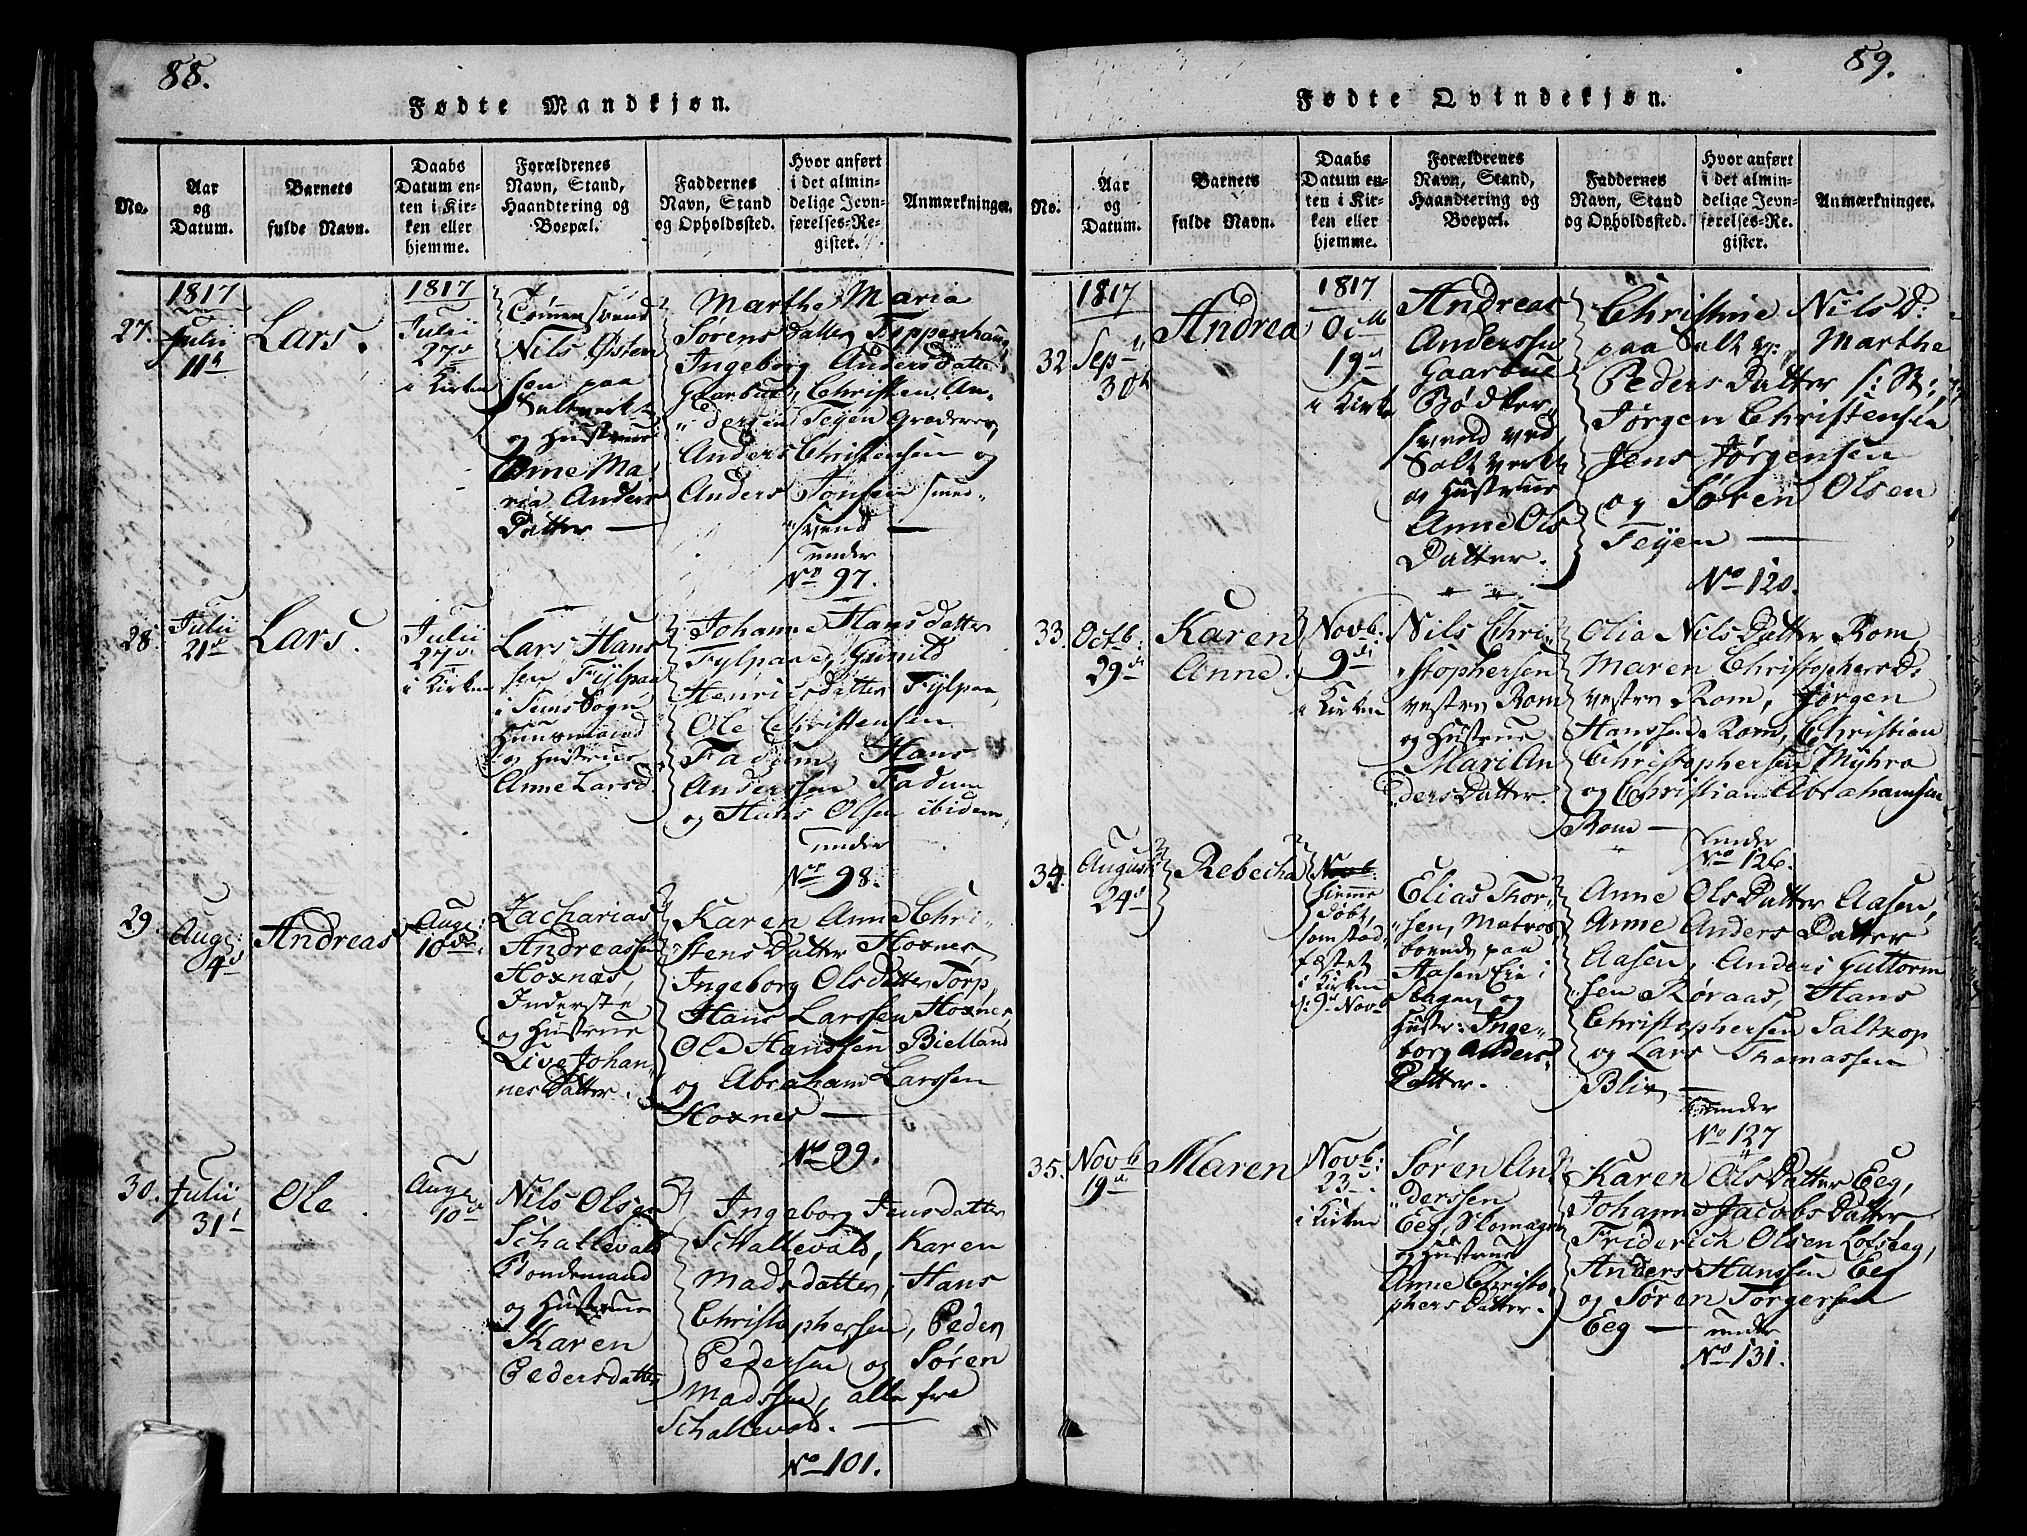 88.
Fødte Mandkjøn.
No.
Aar
og
Datum.
Barnets
fulde Navn.
Daabs
Datum en-
ten i Kir-
ken eller
hjemme.
Forældrenes
Navn, Stand,
Haandtering og
Boepæl.
Faddernes
Navn, Stand
og Opholdssted.
Hvor anført
i det almin-
delige Jevn-
førelses-Re-
gister.
Anmærkninger.
27.
1817
Julii
11te
Lars.
1817
Julii
27de
i Kirken
Tømmersvend
Nils Østen
sen paa
Saltverket
og Hustrue
Anne Ma
ria Anders
Datter —
Marthe Maria
Sørens Datter Teppenhaug
Ingeborg Anders datter
Gaarbue, Christen An-
dersen Teyen Graderer,
Anders Christensen og
Anders Jonsen smed-
svend —
under
No 97.
28.
Julii
21de
Lars.
Julii
27de
i Kirken
Lars Hans
sen Fylpaa
i Sems Sogn
Huusmand
og Hustrue
Anne Larsd.
Johanne Hansdatter
Fylpaa, Gunild
Henrichsdatter Fylpaa,
Ole Christensen
Fadum, Hans
Anderssen Fadum
og Hans Olsen ibidem,
under
No 98.
29.
Aug:
4de
Andreas
Aug:
10de
Zacharias
Andreassen
Hoxnæs,
Inderste
og Hustrue
Live Johan
nes Datter.
Karen Anne Chri-
stens Datter Hoxnes
Ingeborg Olsdatter Torp,
Hans Larssen Hoxnes,
Ole Hanssen Bielland
og Abraham Larssen
Hoxnes —
No 99.
30.
Julii
31te
Ole
Aug:
10de
Nils Olsen
Schallevald
Bondemand
og Hustrue
Karen
Pedersdatter
Ingeborg Jensdatter
Schallevald, Karen
Madsdatter, Hans
Christophersen, Peder
Pedersen og Søren
Madssen, alle fra
Schallevald. —
No 101.
89.
Fødte Qvindekjøn.
No.
Aar
og
Datum.
Barnets
fulde Navn.
Daabs
Datum en-
ten i Kir-
ken eller
hjemme.
Forældrenes
Navn, Stand,
Haandtering og
Boepæl.
Faddernes
Navn, Stand
og Opholdssted.
Hvor anført
i det almin-
delige Jevn-
førelses-Re-
gister.
Anmærkninger.
32
1817
Sep
30te
Andrea
1817
Octb
19de
i Kirken
Andreas
Anderssen
Gaarbue
Bødker
svend ved
Saltverket
og Hustrue
Anne Ols
Datter.
Christine Nils D:
paa Saltv: Marthe
Peders Datter
Jørgen Christensen
Jens Jørgensen
og Søren Olsen
Teyen —
No 120.
33.
Octb:
29de
Karen
Anne
Novb:
9de
i Kirken
Nils Chri
stophersen
vestre Rom
og Hustrue
Mari An
ders Datter.
Olia Nils Datter Rom,
Maren Christophers D:
vestre Rom, Jørgen
Hanssen Rom, Christian
Christophersen Myhra
og Christian Abrahamsen
Rom —
under
No 126.
34.
August
24de
Rebecha
Novb.
Hjemme
døbt,
som stad
fæstet
i Kirken
d: 9de Novb
Elias Thor
sen, Matros
boende paa
Aasen Eie i
Slagen og
Hustr: Inge-
borg Anders
Datter.
Anne Ols Datter Aasen,
Anne Anders Datter
Aasen, Anders Guttorm
sen Røraas, Hans
Christophersen Saltkop
og Lars Thomassen
Blix —
under
No 127
35.
Novb
19de
Maren
Novb:
23de
i Kirken
Søren An
derssen
Eeg, Slomager
og Hustrue
Anne Christo
phers Datter.
Karen Ols Datter Eeg,
Johanne Jacobs Datter,
Friderich Olsen Lofseeg,
Anders Hanssen Eeg
og Søren Torgersen
Eeg —
under
No 131.